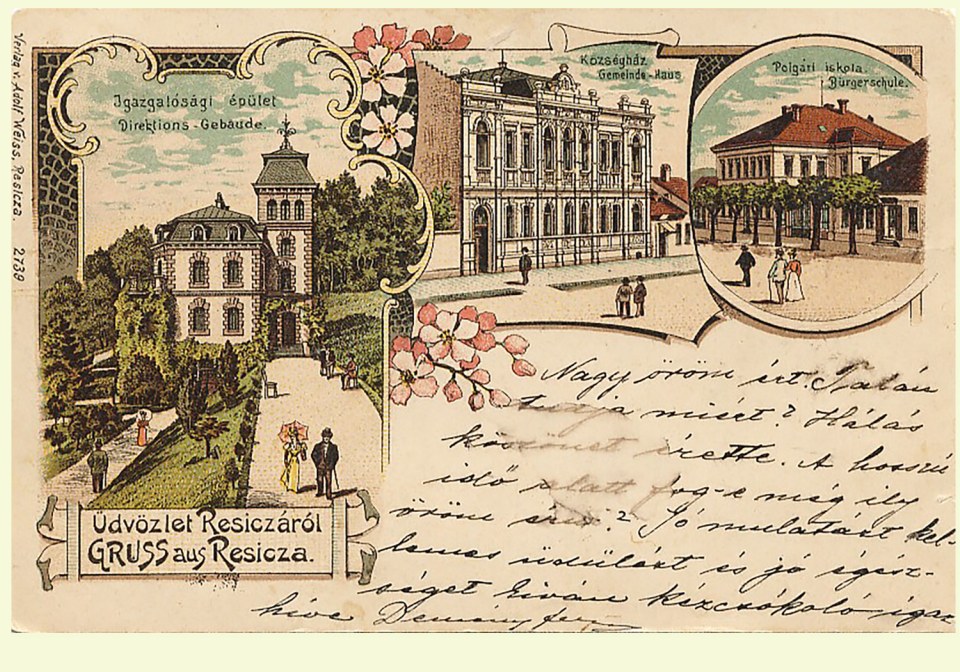 Verlag v. Adolf Weiss, Resicza. 2139
Igazgatósági épület
Direktions-Gebäude.
Községház
Gemeinde-Haus
Polgári iskola.
Bürgerschule.
Üdvözlet Resiczáról
GRUSS aus Resicza.
Nagy öröm ért. Talán
tudja miért? Hálás
köszönet érette. A hosszú
idő alatt fog-e még ily
öröm érni? Jó mulatást kel-
lemes üdülést és jó egész-
séget kíván kézcsókoló igaz
híve Demény